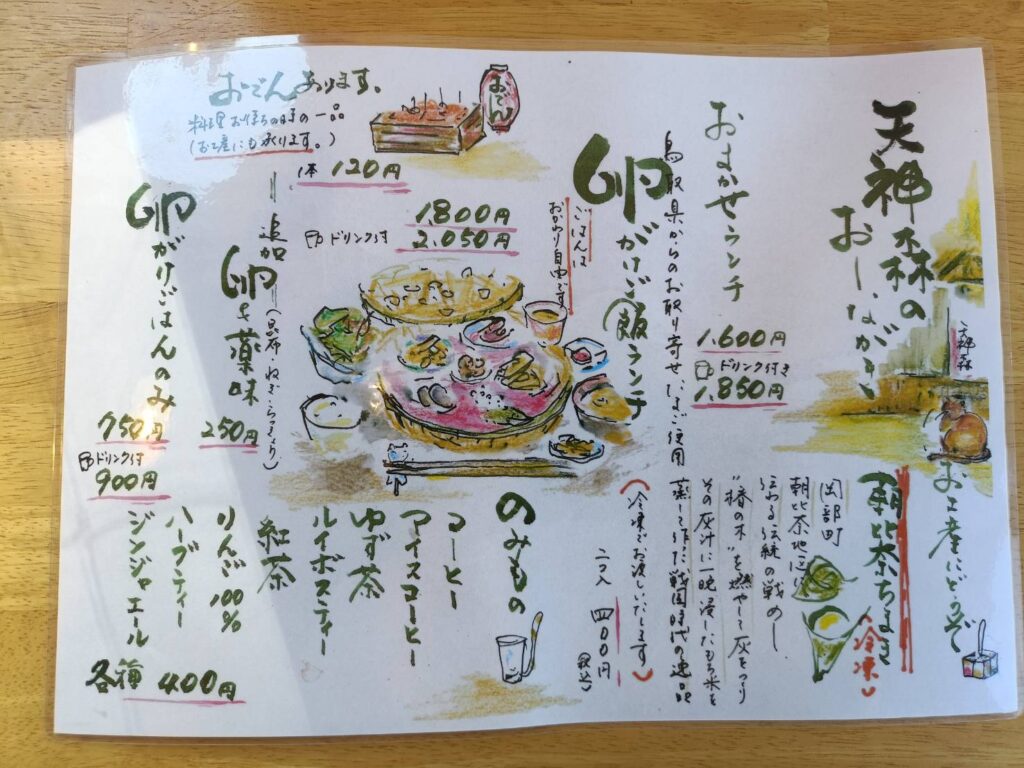 天神森の
おしながき
天神森
おまかせランチ
1.600円
ドリンク付き
1.850円
卵がけご飯ランチ
鳥取県からのお取り寄せたまご使用
ごはんは
おかわり自由です
1.800円
ドリンク付
2.050円
おでんあります。
料理お待ちの時の一品
(お土産にも承ります。)
おでん
1本 120円
追加
卵と薬味
(昆布・ねぎ・らっきょう)
250円
卵がけごはんのみ
750円
ドリンク付
900円
お土産にどうぞ
朝比奈ちまき
(冷凍)
岡部町
朝比奈地区に
伝わる伝統の戦めし
"椿の木"を燃やして灰をつくり
その灰汁に一晩浸したもち米を
蒸して作った戦国時代の逸品
(冷凍でお渡しいたします)
二コ入 四〇〇円
(税込)
のみもの
コーヒー
アイスコーヒー
ゆず茶
ルイボスティー
紅茶
りんご100%
ハーブティー
ジンジャエール
各種 400円